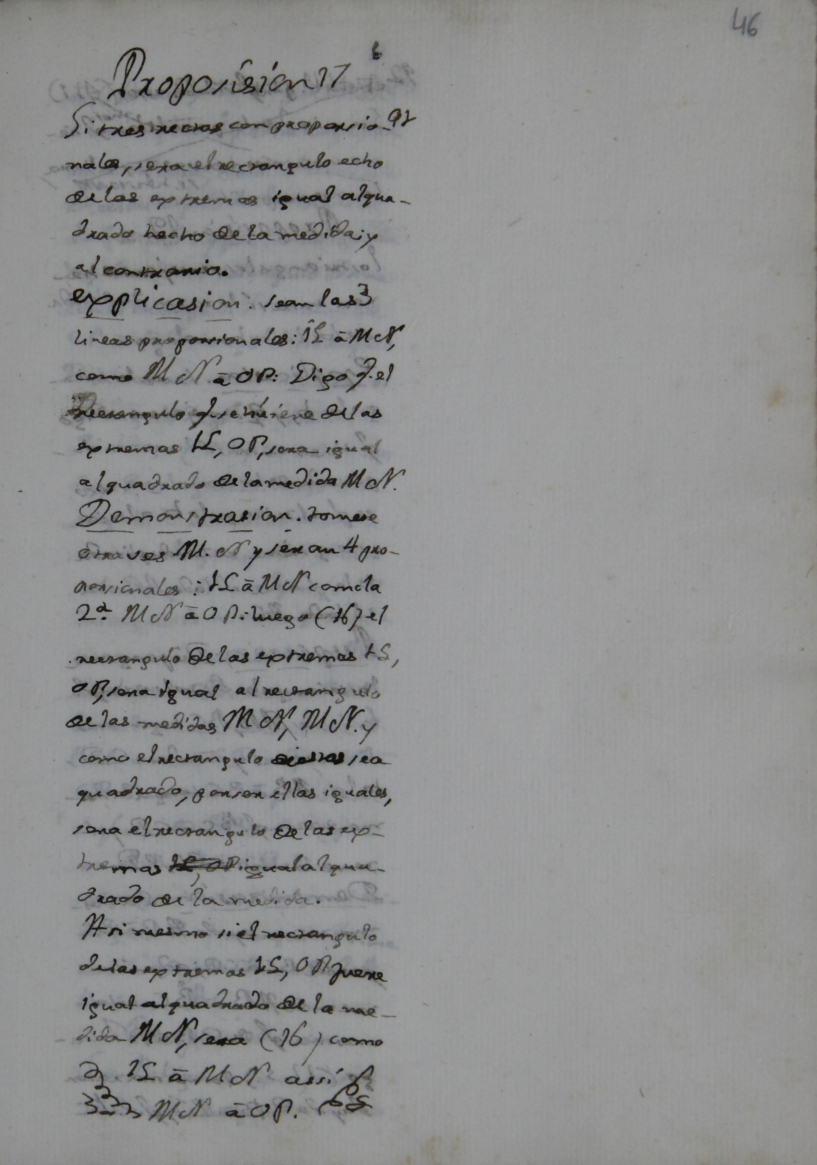 46
6
Proposision 17
Si tres rectas son proporsio-
nales, sera el rectangulo echo
de las extremas igual al qua-
drado hecho de la medida; y
al contrario.
explicasion. sean las 3
lineas proporsionales: IL â MN,
como MN â OP: Digo q. el
rectangulo q. se hisiere de las
extremas IL, OP, sera igual
al quadrado de la medida MN.
Demonstrasion. tomese
otra ves M.N y seran 4 pro-
porsionales: IL â MN como la
2.ª MN â OP: luego (16) el
rectangulo de las extremas IL,
OP, sera igual al rectangulo
de las medidas MN, MN. y
como el rectangulo destas sea
quadrado, por ser ellas iguales,
sera el rectangulo de las ex-
tremas IL, OP igual al qua-
drado de la medida.
Asi mesmo si el rectangulo
de las extremas IL, OP fuere
igual al quadrado de la me-
dida MN, sera (16) como
IL â MN assí
MN â OP.